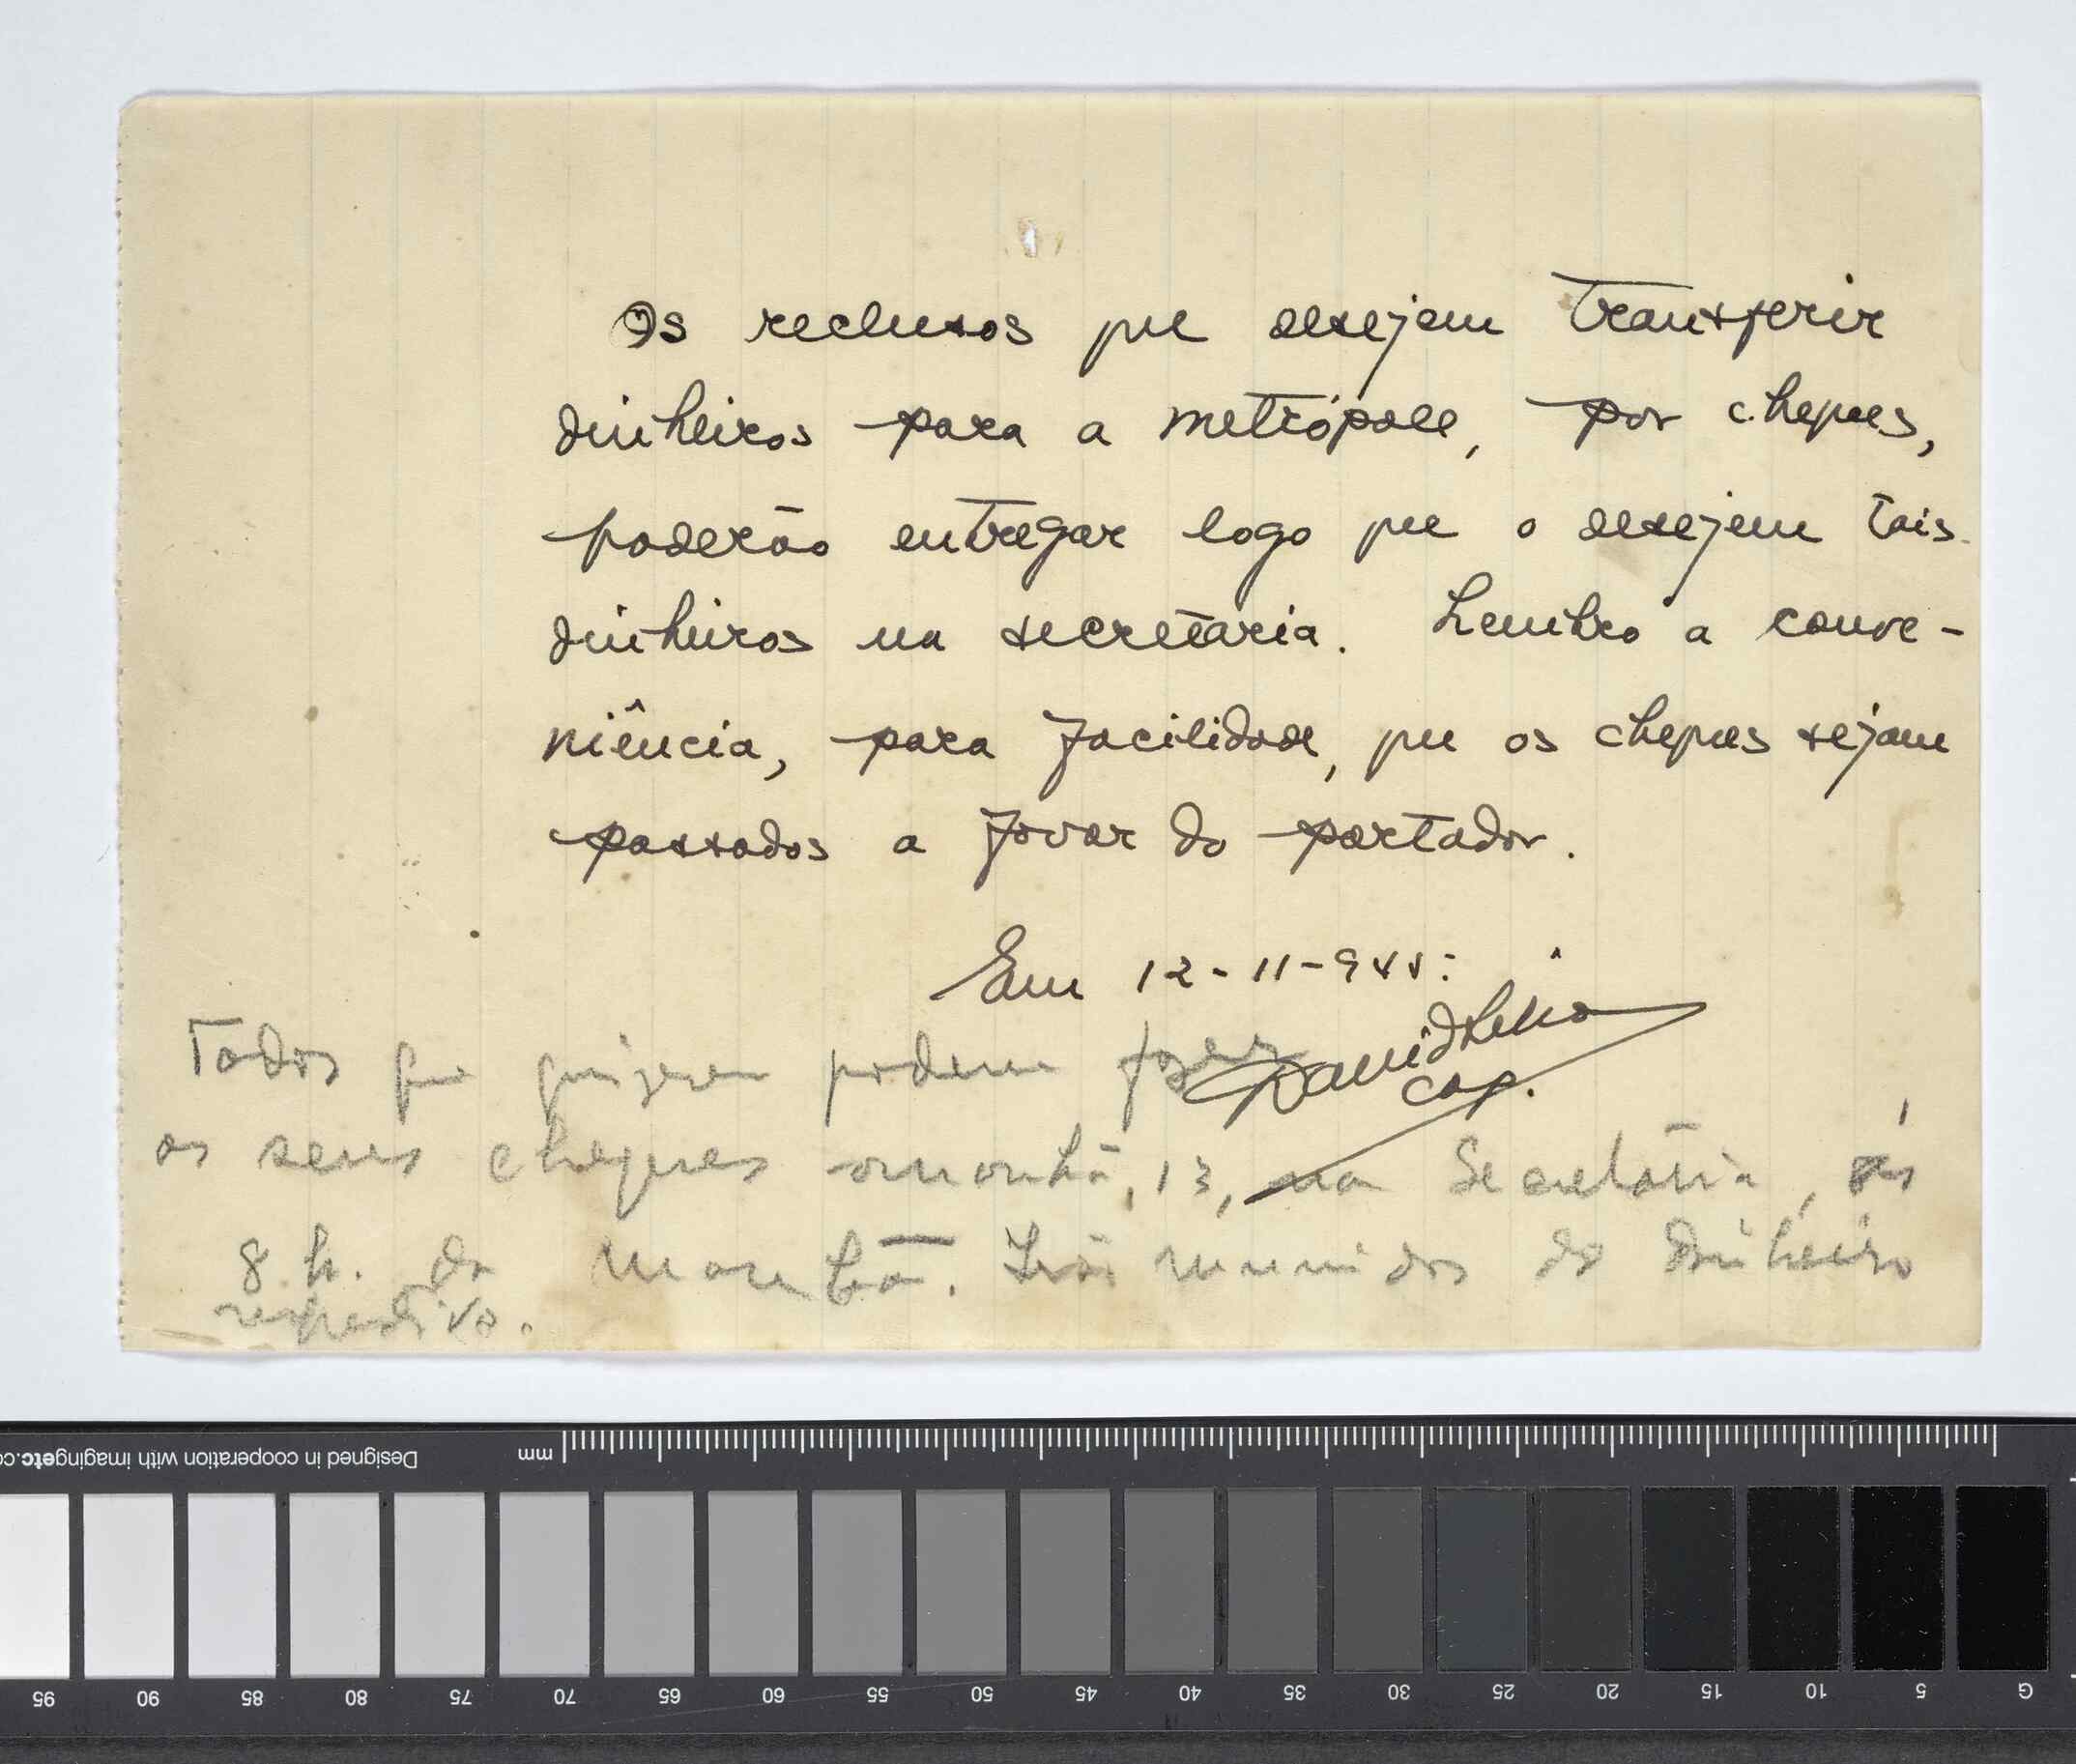 Os reclusos que desejem transferir
dinheiros para a metrópole, por cheques,
poderão entregar logo que o desejem tais
dinheiros na secretaria. Lembro a conve-
niência, para facilidade, que os cheques sejam
passados a favor do portador.
Em 12-11-944:
David
cap.
Todos que quizerem podem fazer
os seus cheques amanhã, 13, na Secretária, ás
8 h. da manhã. Irão munidos do dinheiro
respectivo.
Designed in cooperation with imagingetc.co
mm
95 90 85 80 75 70 65 60 55 50 45 40 35 30 25 20 15 10 5 G